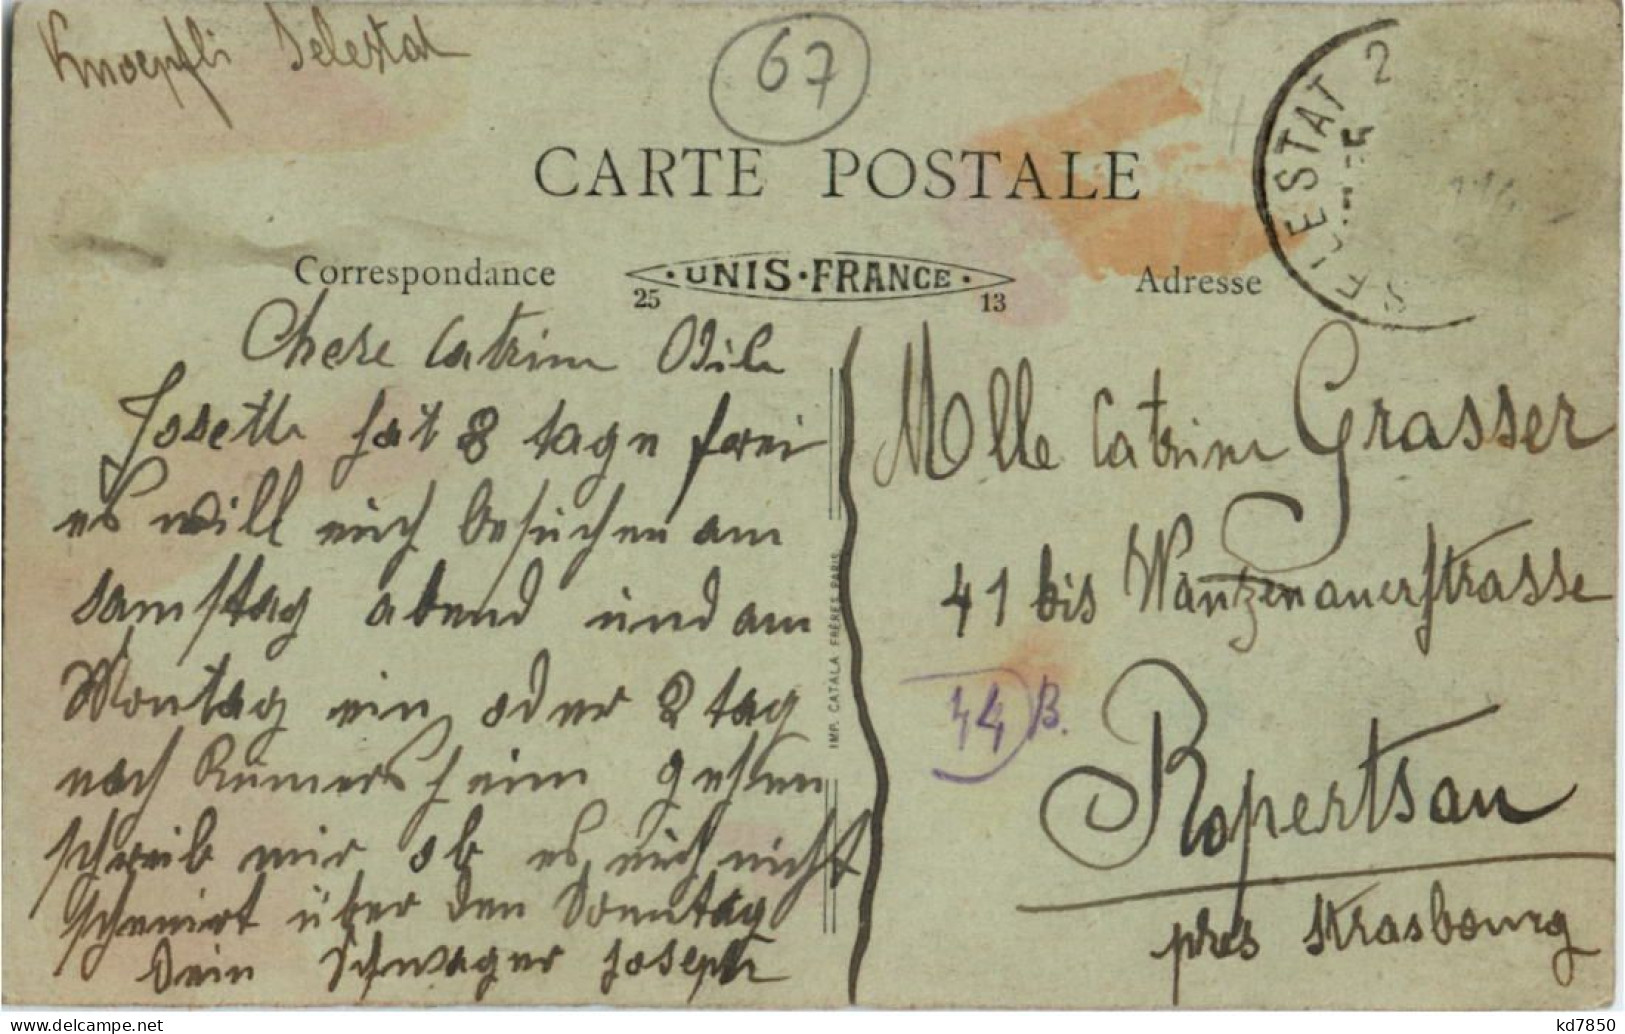 Knoepfli Selestat
67
CARTE POSTALE
SELESTAT 2
Correspondance
25 · UNIS · FRANCE · 13
Adresse
Chere Catrin Odile
Josett hat 8 tage frei
es will eich besuchen am
samstag abend und am
Montag ein oder 2 tag
nach Rumersheim gehen
schreib mir ob es eich nicht
scheniert über den Sonntag
Dein Schwager Joseph
IMP. CATALA FRERES PARIS
Molle Catrine Grasser
41 bis Wantzenauerstrasse
44 B.
Ropertsau
près Strasbourg
kd7850